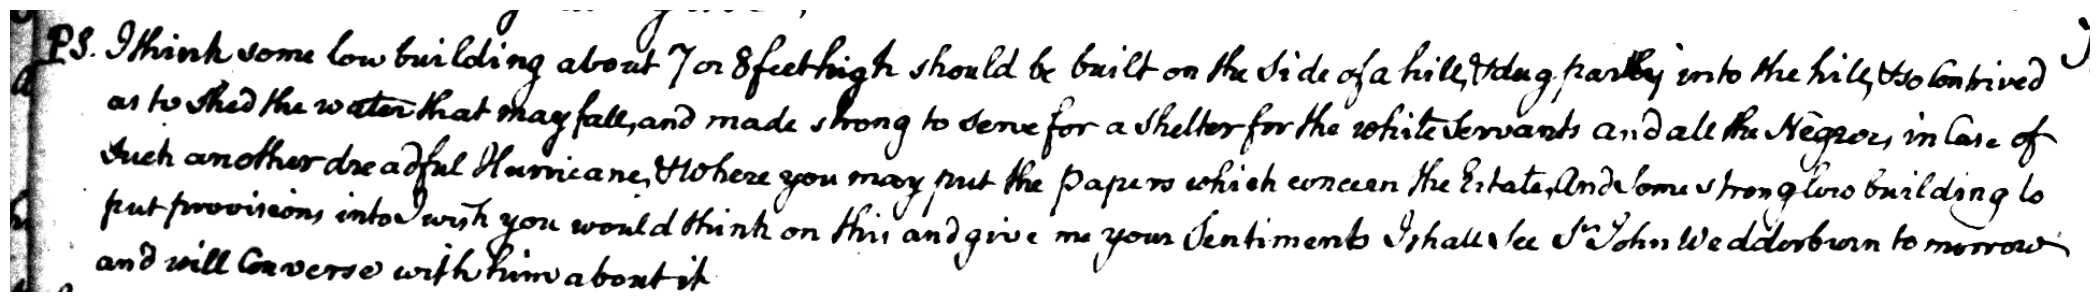 PS. I think some low building about 7 or 8 feet high should be built on the Side of a hill, & dug partly into the hill, & so Contrived
as to shed the water that may fall, and made strong to serve for a shelter for the white Servants and all the Negroes, in Case of
Such another dreadful Hurricane, & Where you may put the papers which concern the Estate, And Some strong low building to
put provisions into I wish you would think on this and give me your Sentiments I shall See Sr John Wedderburn to morrow
and will Converse with him about it